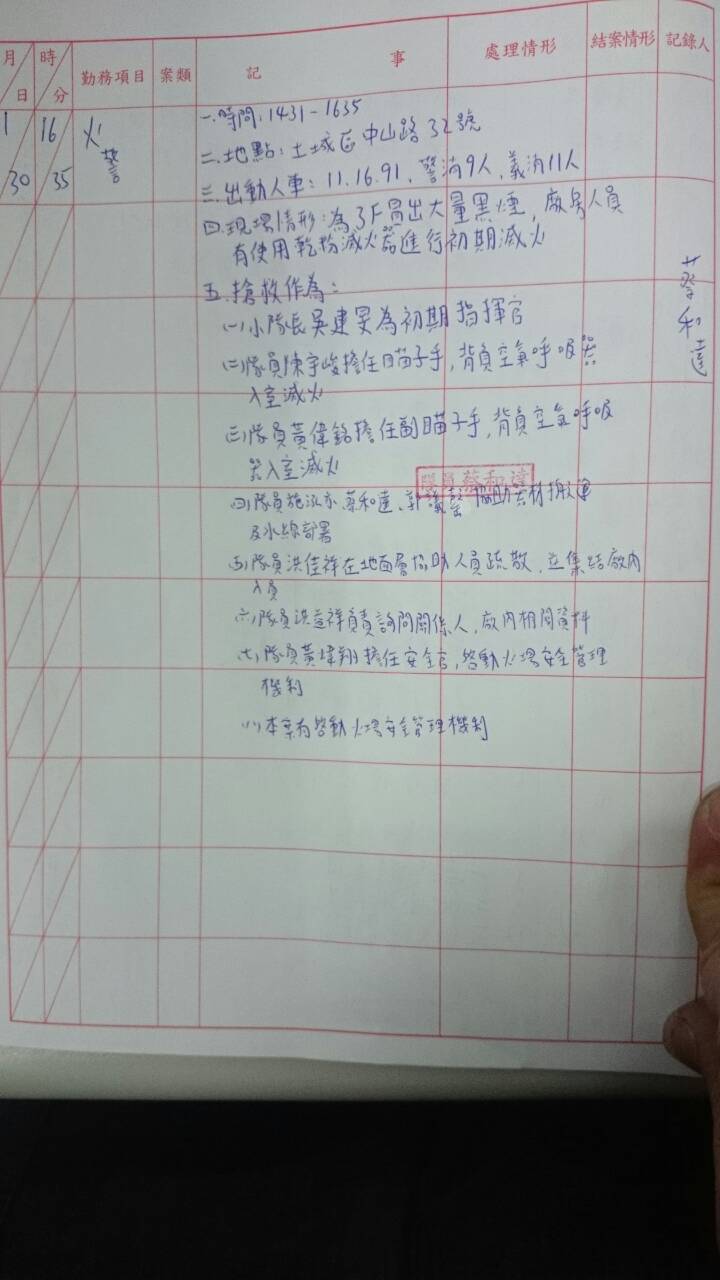 月 日 時 分 勤務項目 案類 記 事 處理情形 結案情形 記錄人
1 30 16 35 火警
一.時間:1431-1635
二.地點:土城區中山路32號
三.出動人車:11.16.91、警消9人,義消11人
四.現場情形:為3F冒出大量黑煙,廠房人員
有使用乾粉滅火器進行初期滅火
五.搶救作為:
(一)小隊長吳建旻為初期指揮官
(二)隊員陳宇峻擔任瞄子手,背負空氣呼吸器
入室滅火
(三)隊員黃偉銘擔任副瞄子手,背負空氣呼吸
器入室滅火
隊員蔡和達
(四)隊員施泓亦、蔡和達、郭議 協助器材搬運
及水線部署
(五)隊員洪佳祥在地面層協助人員疏散,並集結廠內
人員
(六)隊員洪 祥負責詢問關係人,廠內相關資料
(七)隊員黃煒翔擔任安全官,啓動火場安全管理
機制
(八)本案有啓動火場安全管理機制
蔡和達